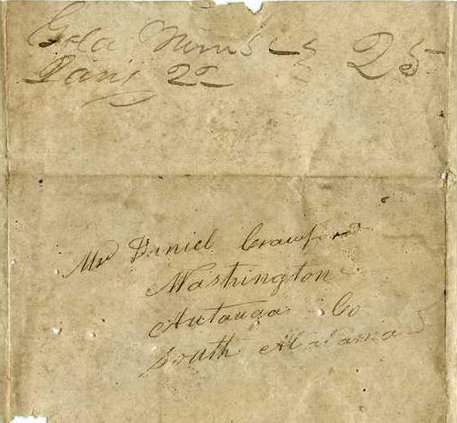 Gold Mines 25
Jany 22
Mr Daniel Crawford
Washington
Autauga Co
South Alabama